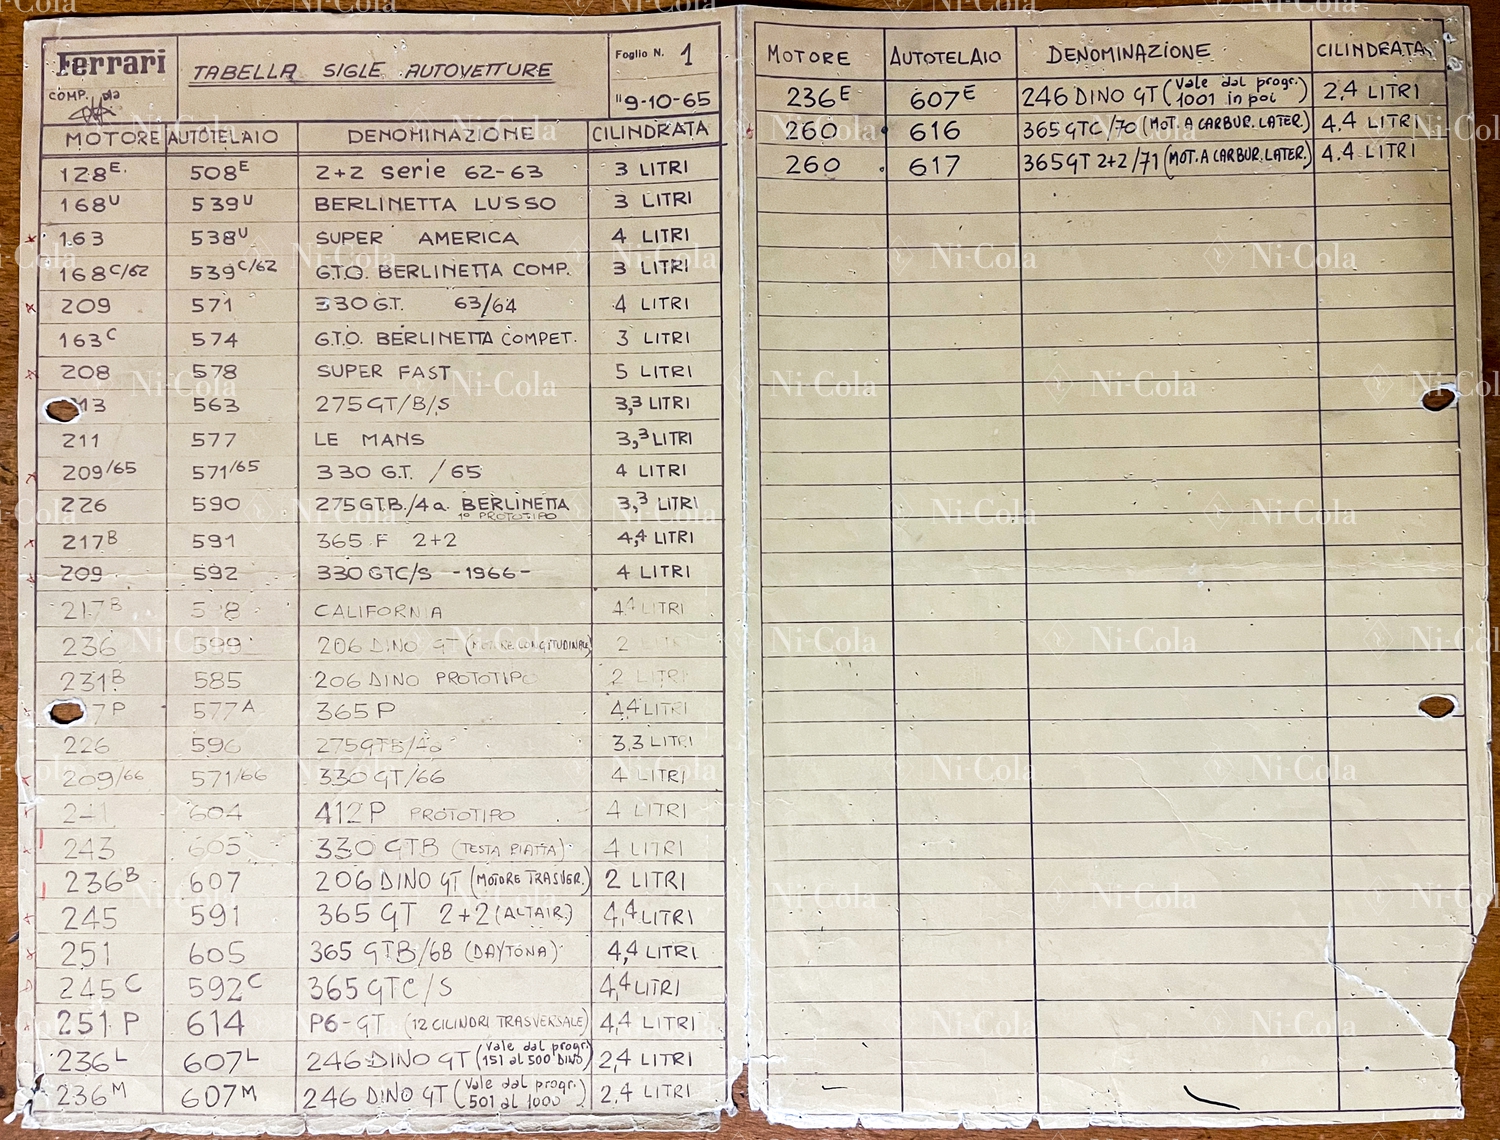 Ferrari
COMP. DIA
TABELLA SIGLE AUTOVETTURE
Foglio N. 1
"9-10-65
MOTORE AUTOTELAIO DENOMINAZIONE CILINDRATA
128E. 508E 2+2 serie 62-63 3 LITRI
168U 539U BERLINETTA LUSSO 3 LITRI
163 538U SUPER AMERICA 4 LITRI
168C/62 539C/62 G.T.O. BERLINETTA COMP. 3 LITRI
209 571 330 G.T. 63/64 4 LITRI
163C 574 G.T.O. BERLINETTA COMPET. 3 LITRI
208 578 SUPER FAST 5 LITRI
13 563 275 GT/B/S 3,3 LITRI
211 577 LE MANS 3,3 LITRI
209/65 571/65 330 G.T. /65 4 LITRI
226 590 275 GTB./4a. BERLINETTA 3,3 LITRI
1° PROTOTIPO
217B 591 365 F 2+2 4,4 LITRI
209 592 330 GTC/S -1966- 4 LITRI
217B CALIFORNIA 4,4 LITRI
236 599 206 DINO GT (MOTORE LONGITUDINALE) 2
231B 585 206 DINO PROTOTIPO 2 LITRI
7P 577A 365 P 4,4 LITRI
226 596 275 GTB/4a 3,3 LITRI
209/66 571/66 330 GT/66 4 LITRI
241 604 412 P PROTOTIPO 4 LITRI
243 605 330 GTB (TESTA PIATTA) 4 LITRI
236B 607 206 DINO GT (MOTORE TRASVER.) 2 LITRI
245 591 365 GT 2+2 (ALTAIR.) 4,4 LITRI
251 605 365 GTB/68 (DAYTONA) 4,4 LITRI
245C 592C 365 GTC/S 4,4 LITRI
251 P 614 P6-GT (12 CILINDRI TRASVERSALE) 4,4 LITRI
236L 607L 246 DINO GT (Vale dal progr. 151 al 500 DINO) 2,4 LITRI
236M 607M 246 DINO GT (Vale dal progr. 501 al 1000) 2,4 LITRI
MOTORE AUTOTELAIO DENOMINAZIONE CILINDRATA
236E 607E 246 DINO GT (Vale dal progr. 1001 in poi) 2,4 LITRI
260 616 365 GTC/70 (MOT. A CARBUR. LATER.) 4.4 LITRI
260 617 365 GT 2+2/71 (MOT. A CARBUR. LATER.) 4.4 LITRI
Ni-Cola